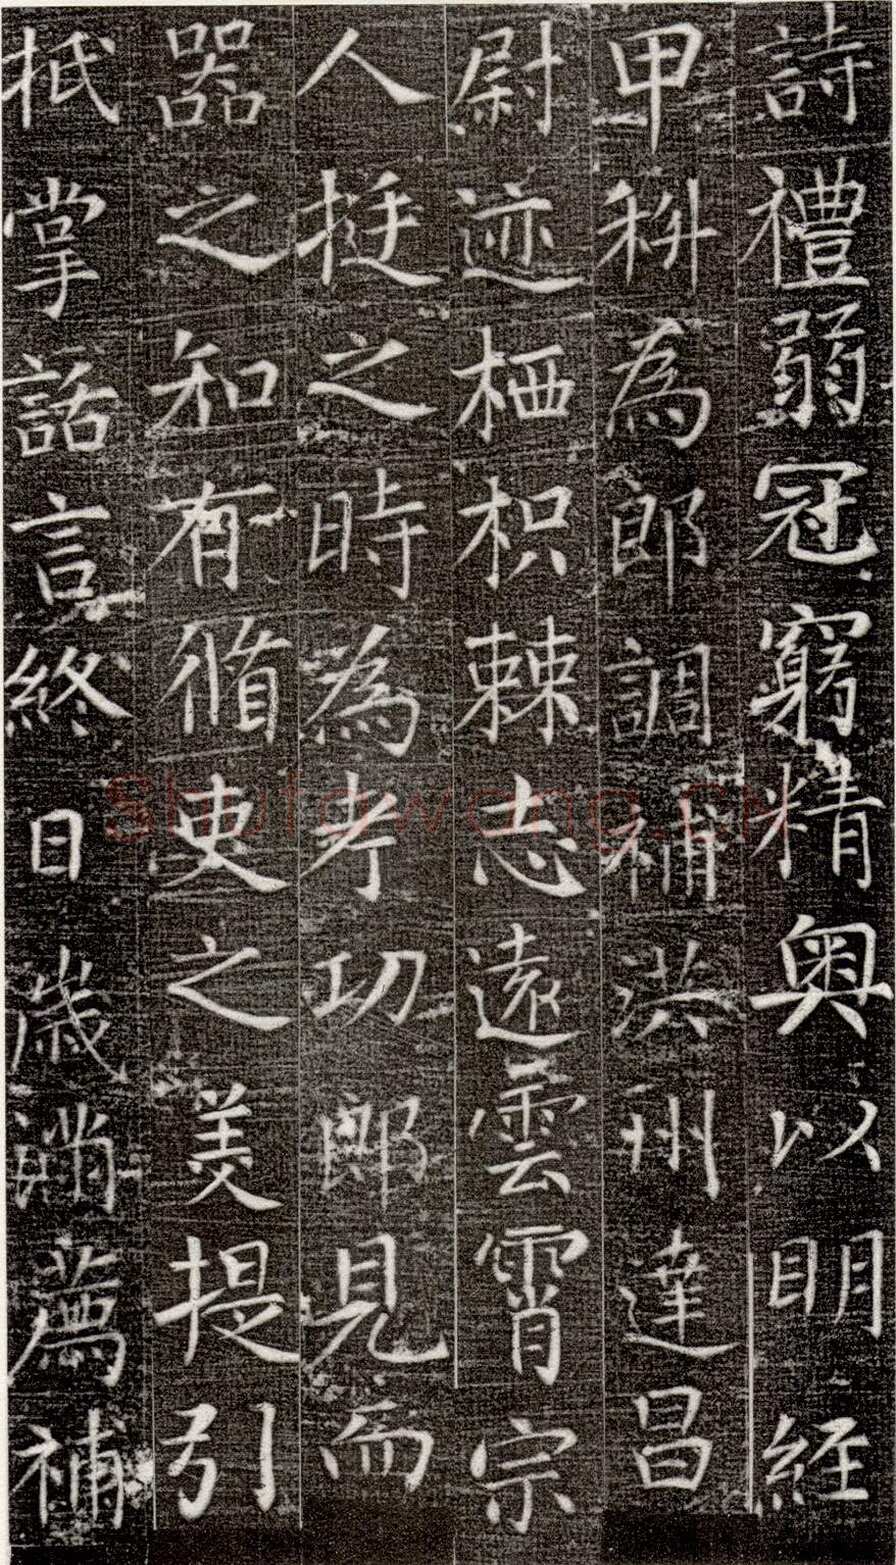 詩禮弱冠窮精奧以明經
甲科為郎調補洪州建昌
尉迹栖枳棘志遠雲霄宗
人挺之時為考功郎見而
器之知有脩吏之美提引
抵掌話言終日歲滿薦補
Shufawang.CN